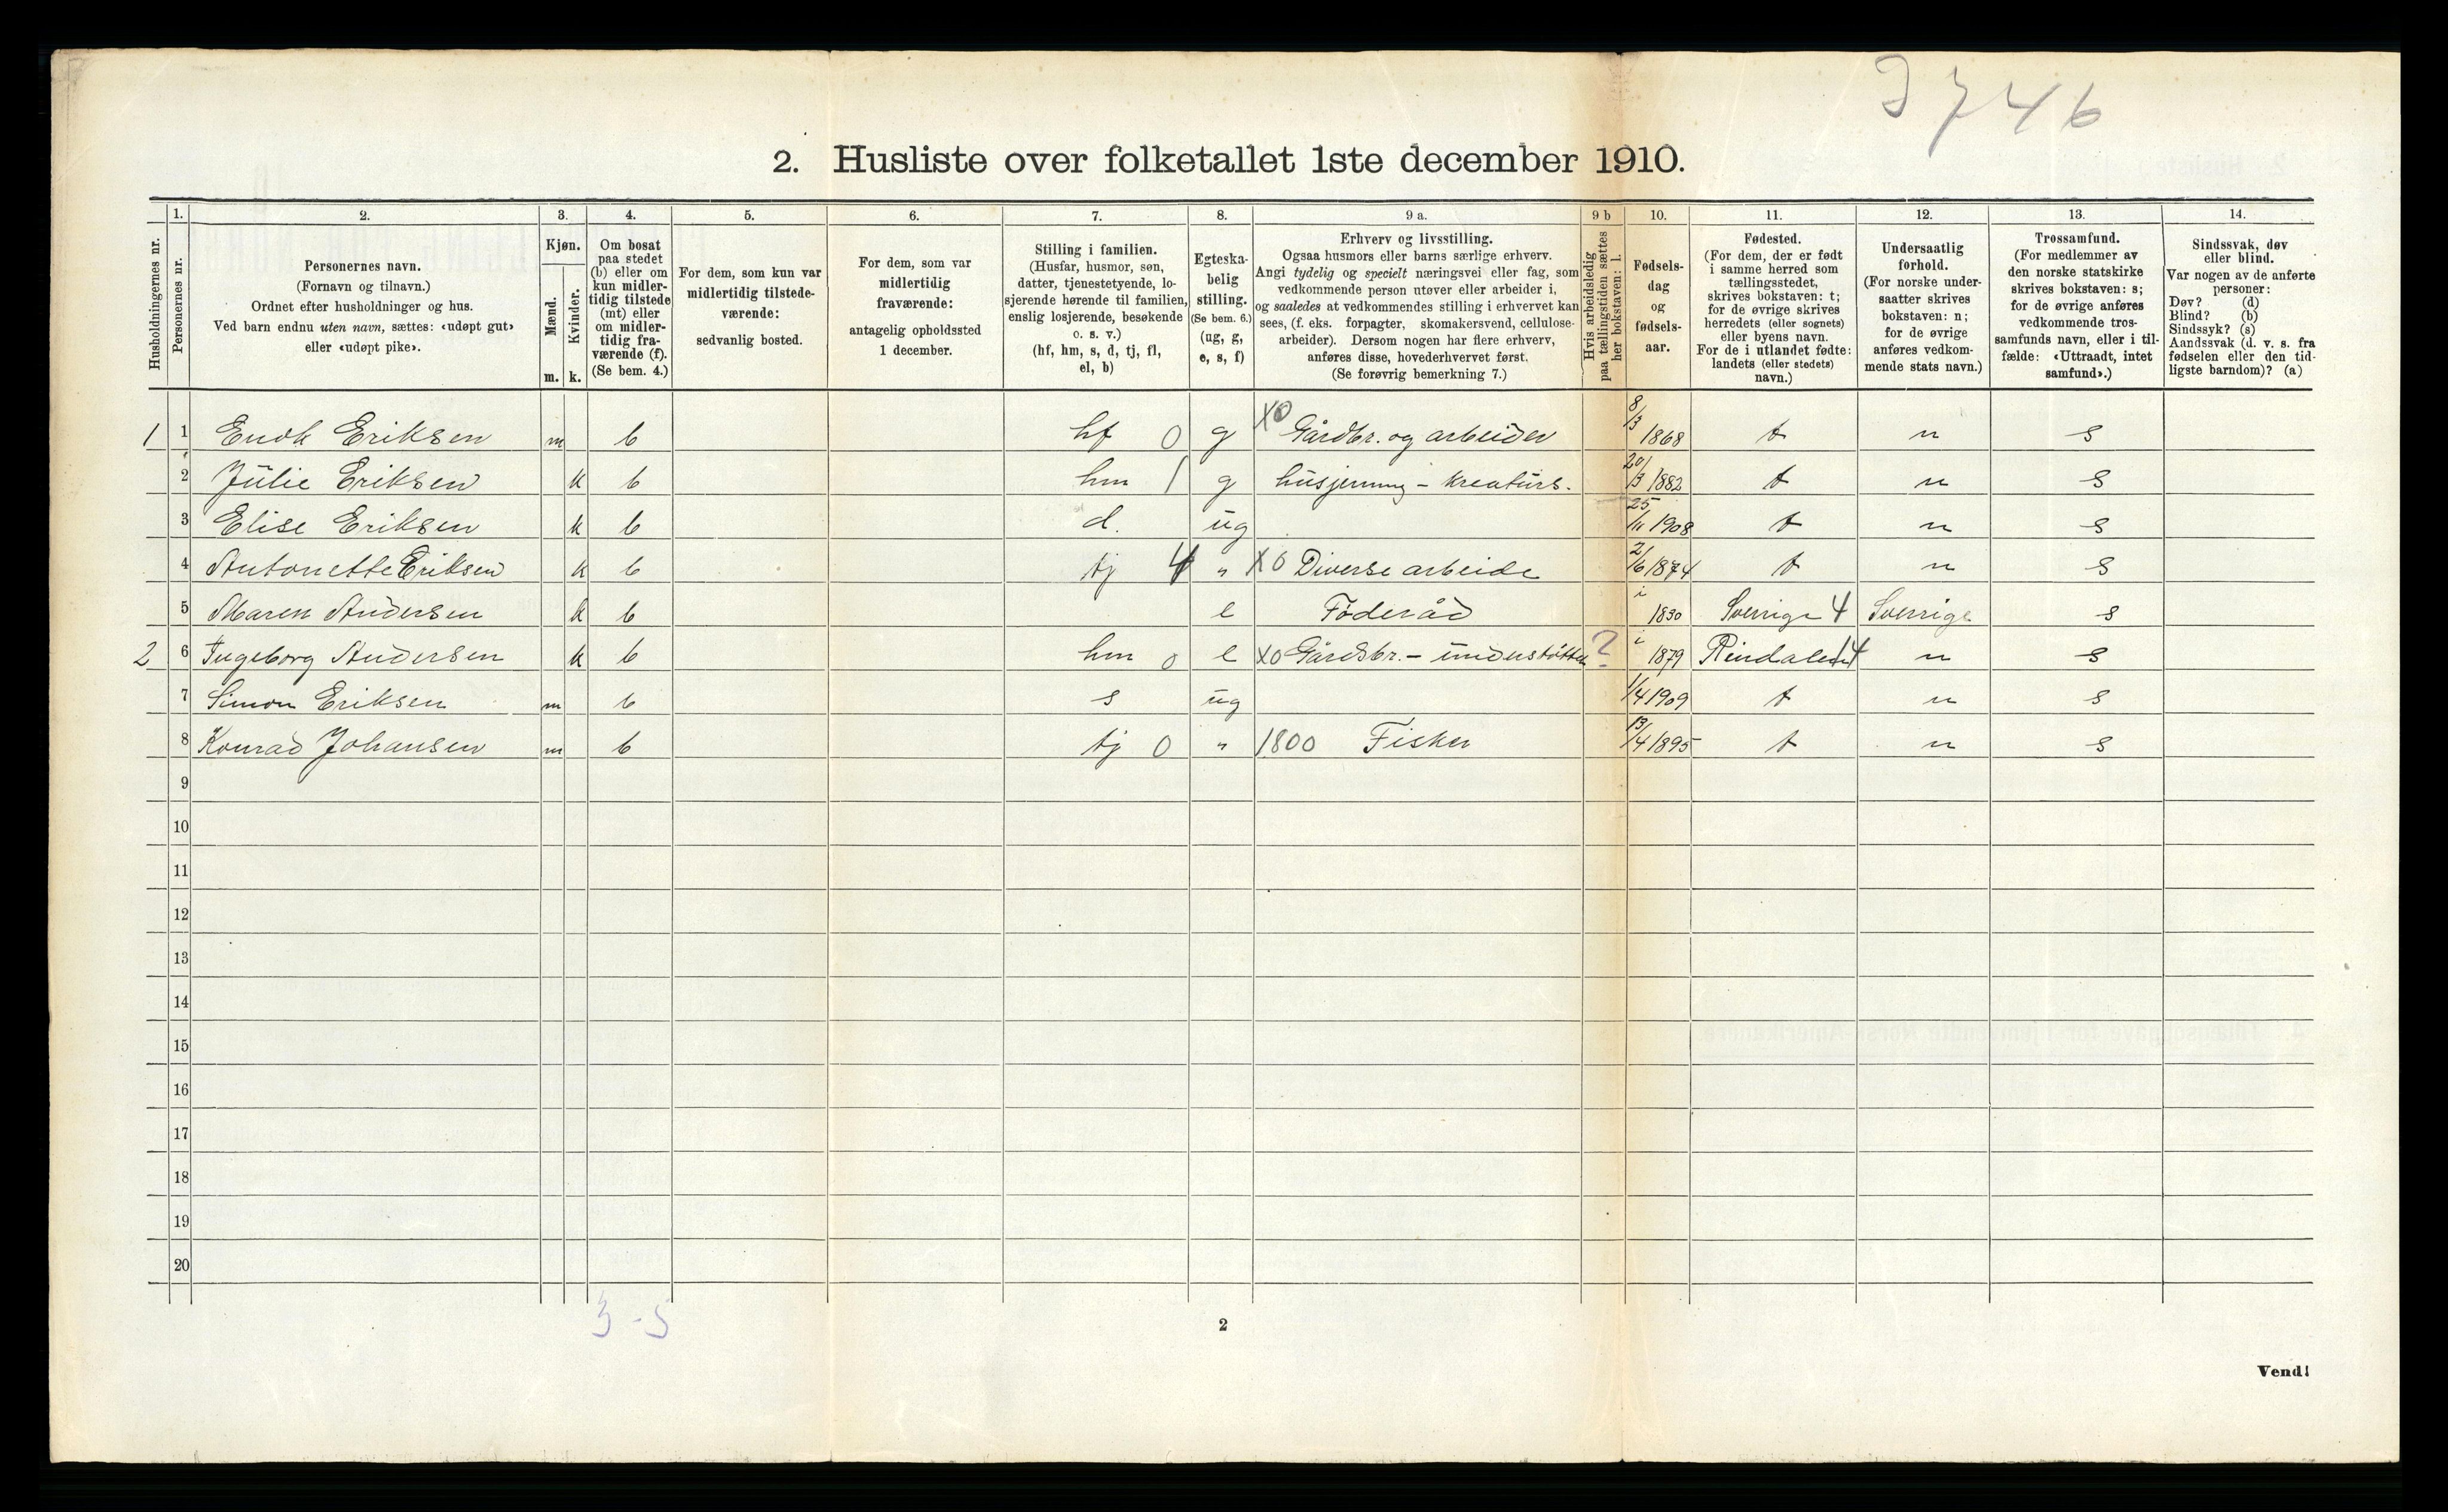 3746
2. Husliste over folketallet 1ste december 1910.
Husholdningernes nr.
1. Personernes nr.
2. Personernes navn. (Fornavn og tilnavn.) Ordnet efter husholdninger og hus. Ved barn endnu uten navn, sættes: «udøpt gut» eller «udøpt pike».
3. Kjøn. Mænd. m. Kvinder. k.
4. Om bosat paa stedet (b) eller om kun midlertidig tilstede (mt) eller om midlertidig fraværende (f). (Se bem. 4.)
5. For dem, som kun var midlertidig tilstedeværende: sedvanlig bosted.
6. For dem, som var midlertidig fraværende: antagelig opholdssted 1 december.
7. Stilling i familien. (Husfar, husmor, søn, datter, tjenestetyende, losjerende hørende til familien, enslig losjerende, besøkende o. s. v.) (hf, hm, s, d, tj, fl, el, b)
8. Egteskabelig stilling. (Se bem. 6.) (ug, g, e, s, f)
9 a. Erhverv og livsstilling. Ogsaa husmors eller barns særlige erhverv. Angi tydelig og specielt næringsvei eller fag, som vedkommende person utøver eller arbeider i, og saaledes at vedkommendes stilling i erhvervet kan sees, (f. eks. forpagter, skomakersvend, cellulosearbeider). Dersom nogen har flere erhverv, anføres disse, hovederhvervet først. (Se forøvrig bemerkning 7.)
9 b Hvis arbeidsledig paa tællingstiden sættes her bokstaven: l.
10. Fødselsdag og fødselsaar.
11. Fødested. (For dem, der er født i samme herred som tællingsstedet, skrives bokstaven: t; for de øvrige skrives herredets (eller sognets) eller byens navn. For de i utlandet fødte: landets (eller stedets) navn.)
12. Undersaatlig forhold. (For norske undersaatter skrives bokstaven: n; for de øvrige anføres vedkommende stats navn.)
13. Trossamfund. (For medlemmer av den norske statskirke skrives bokstaven: s; for de øvrige anføres vedkommende trossamfunds navn, eller i tilfælde: «Uttraadt, intet samfund».)
14. Sindssvak, døv eller blind. Var nogen av de anførte personer: Døv? (d) Blind? (b) Sindssyk? (s) Aandssvak (d. v. s. fra fødselen eller den tidligste barndom)? (a)
1 1 Enok Eriksen m b hf 0 g X0 Gårdbr. og arbeider 8/3 1868 t n s
2 Julie Eriksen k b hm 1 g husgjerning - kreaturs. 20/3 1882 t n s
3 Elise Eriksen k b d. ug 25/11 1908 t n s
4 Antonette Eriksen k b tj 4 " X0 Diverse arbeide 2/6 1874 t n s
5 Maren Andersen k b e Føderåd i 1830 Sverrige 4 Sverrige s
2 6 Ingeborg Andersen k b hm 0 e X0 Gårdsbr. - ? i 1879 n s
7 Simon Eriksen m b s ug 1/4 1909 t n s
8 Konrad Johansen m b tj 0 " 1800 Fisker 13/4 1895 t n s
9
10
11
12
13
14
15
16
17
18
19
20
3 - 5
2
Vend!